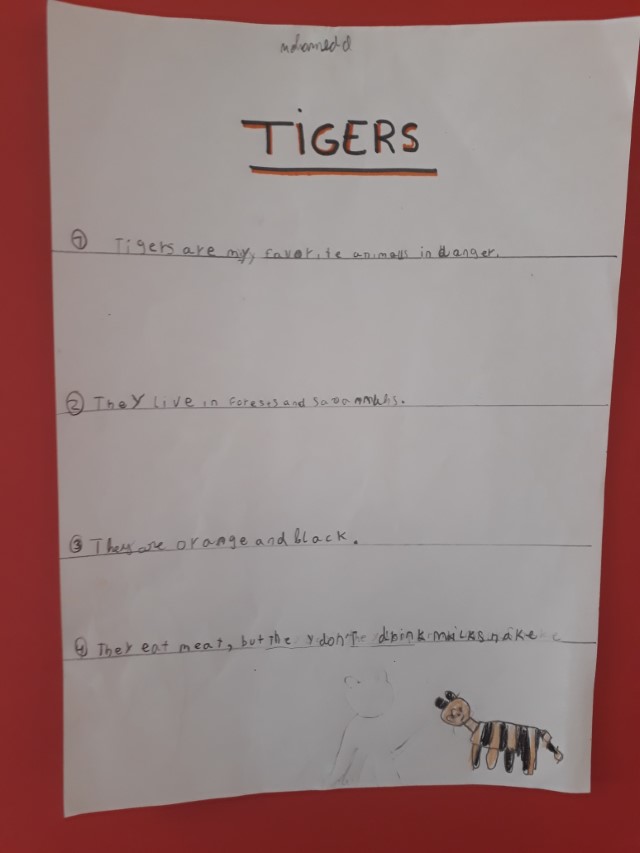 mohamed d
TIGERS
1 Tigers are my, favorite animals in danger.
2 They live in forests and savannahs.
3 They are orange and black.
4 They eat meat, but they don't drink milkshake